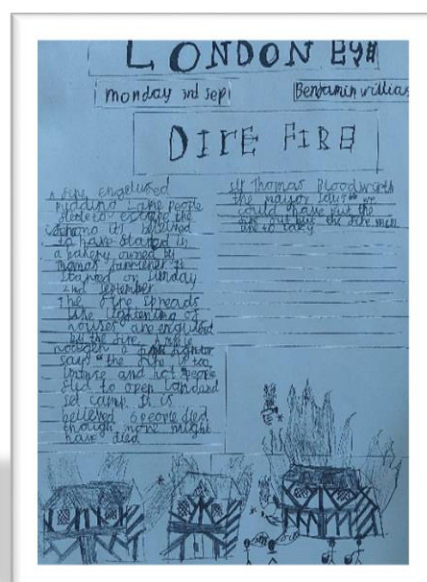 LONDON EYE
monday 3rd sep
Benjamin villias
DIRE FIRE
A fire engelufed
Pudding Lane people
to escape the
it's believed
to have started in
a bakery owned by
Thomas farriner it
started on Sunday
2nd September
The fire spreads
like lightening of
houses are engulfed
by the fire.
a fire fighter
says "the fire is too
intense and hot people
fled to open land and
set camp. It is
believed 6 people died
though more might
have died
sir Thomas Bloodworth
the mayor says "we
could have put the
fire out but the fire men
are to lazy